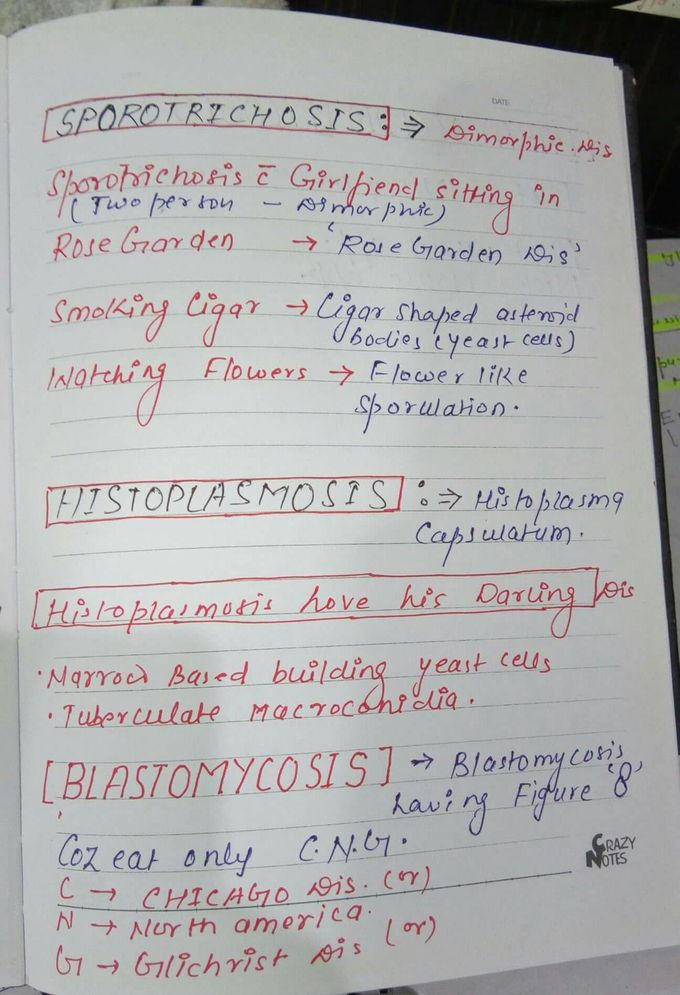 DATE
SPOROTRICHOSIS : ⇒ Dimorphic. Dis
Sporotrichosis c̄ Girlfiend sitting in
(Two person - Dimorphic)
Rose Garden → 'Rose Garden Dis'
Smoking Cigar → Cigar shaped asteroid
bodies (yeast cells)
Watching Flowers → Flower like
Sporulation.
HISTOPLASMOSIS : ⇒ Histoplasma
Capsulatum.
Histoplasmosis love his Darling Dis
· Narrow Based building yeast cells
· Tuberculate macroconidia.
[BLASTOMYCOSIS] → Blastomycosis
having Figure '8'
Coz eat only C.N.G.
CRAZY NOTES
C → CHICAGO Dis. (or)
N → North america.
(or)
G → Glichrist Dis